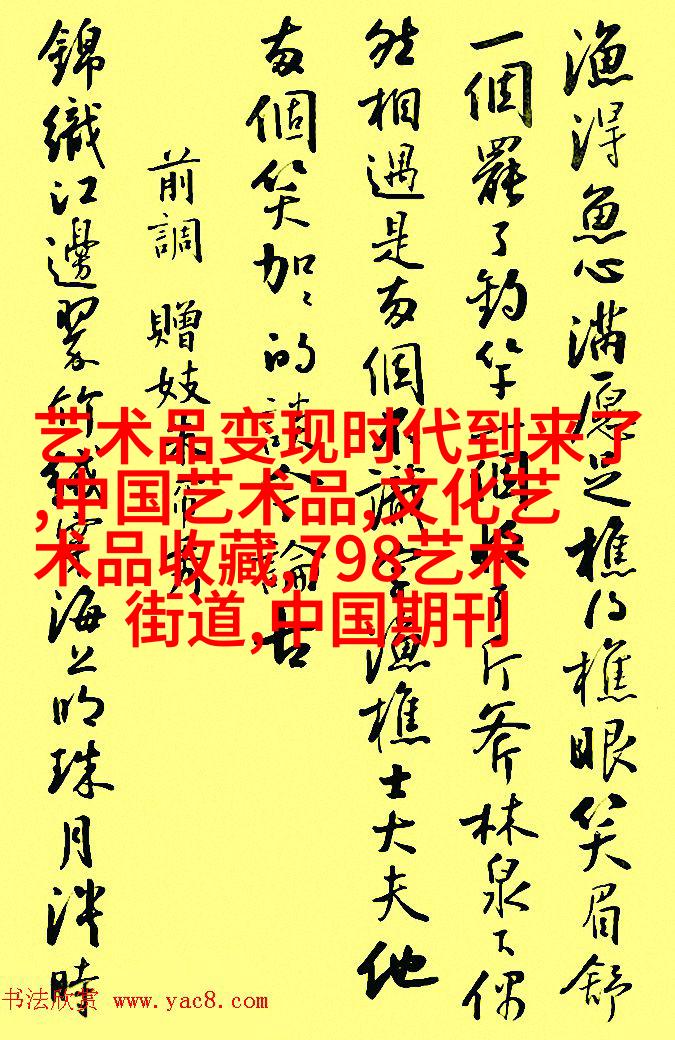 渔得鱼心满愿足樵得樵眼笑眉舒
一個罷了钓竿一個收了斤斧林泉下偶
然相遇是两個不識字漁樵士大夫他
两個笑加加的談今論古
前調 贈妓朱帘秀
錦織江邊翠竹絨穿海上明珠月淡時
艺术品变现时代到来了
,中国艺术品,文化艺
术品收藏,798艺术
街道,中国期刊
书法欣赏 www.yac8.com